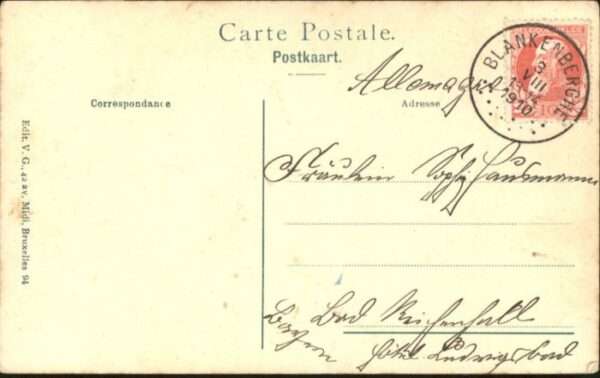 Carte Postale.
Postkaart.
Allemagne
BLANKENBERGHE
VIII
1910
Correspondance
Adresse
Fräulein Sophi Hausmann
Bad Reichenhall
Bayern
Hôtel Ludwigsbad
Edit. V. G., 42 av. Midi, Bruxelles 94